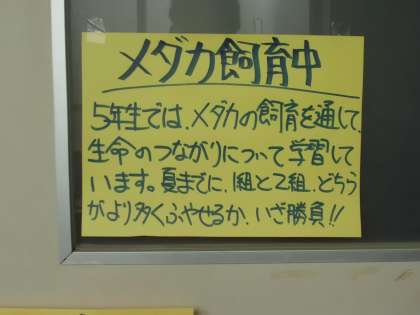 メダカ飼育中
5年生では、メダカの飼育を通して、
生命のつながりについて学習して
います。夏までに、1組と2組、どちら
がより多くふやせるか、いざ勝負!!